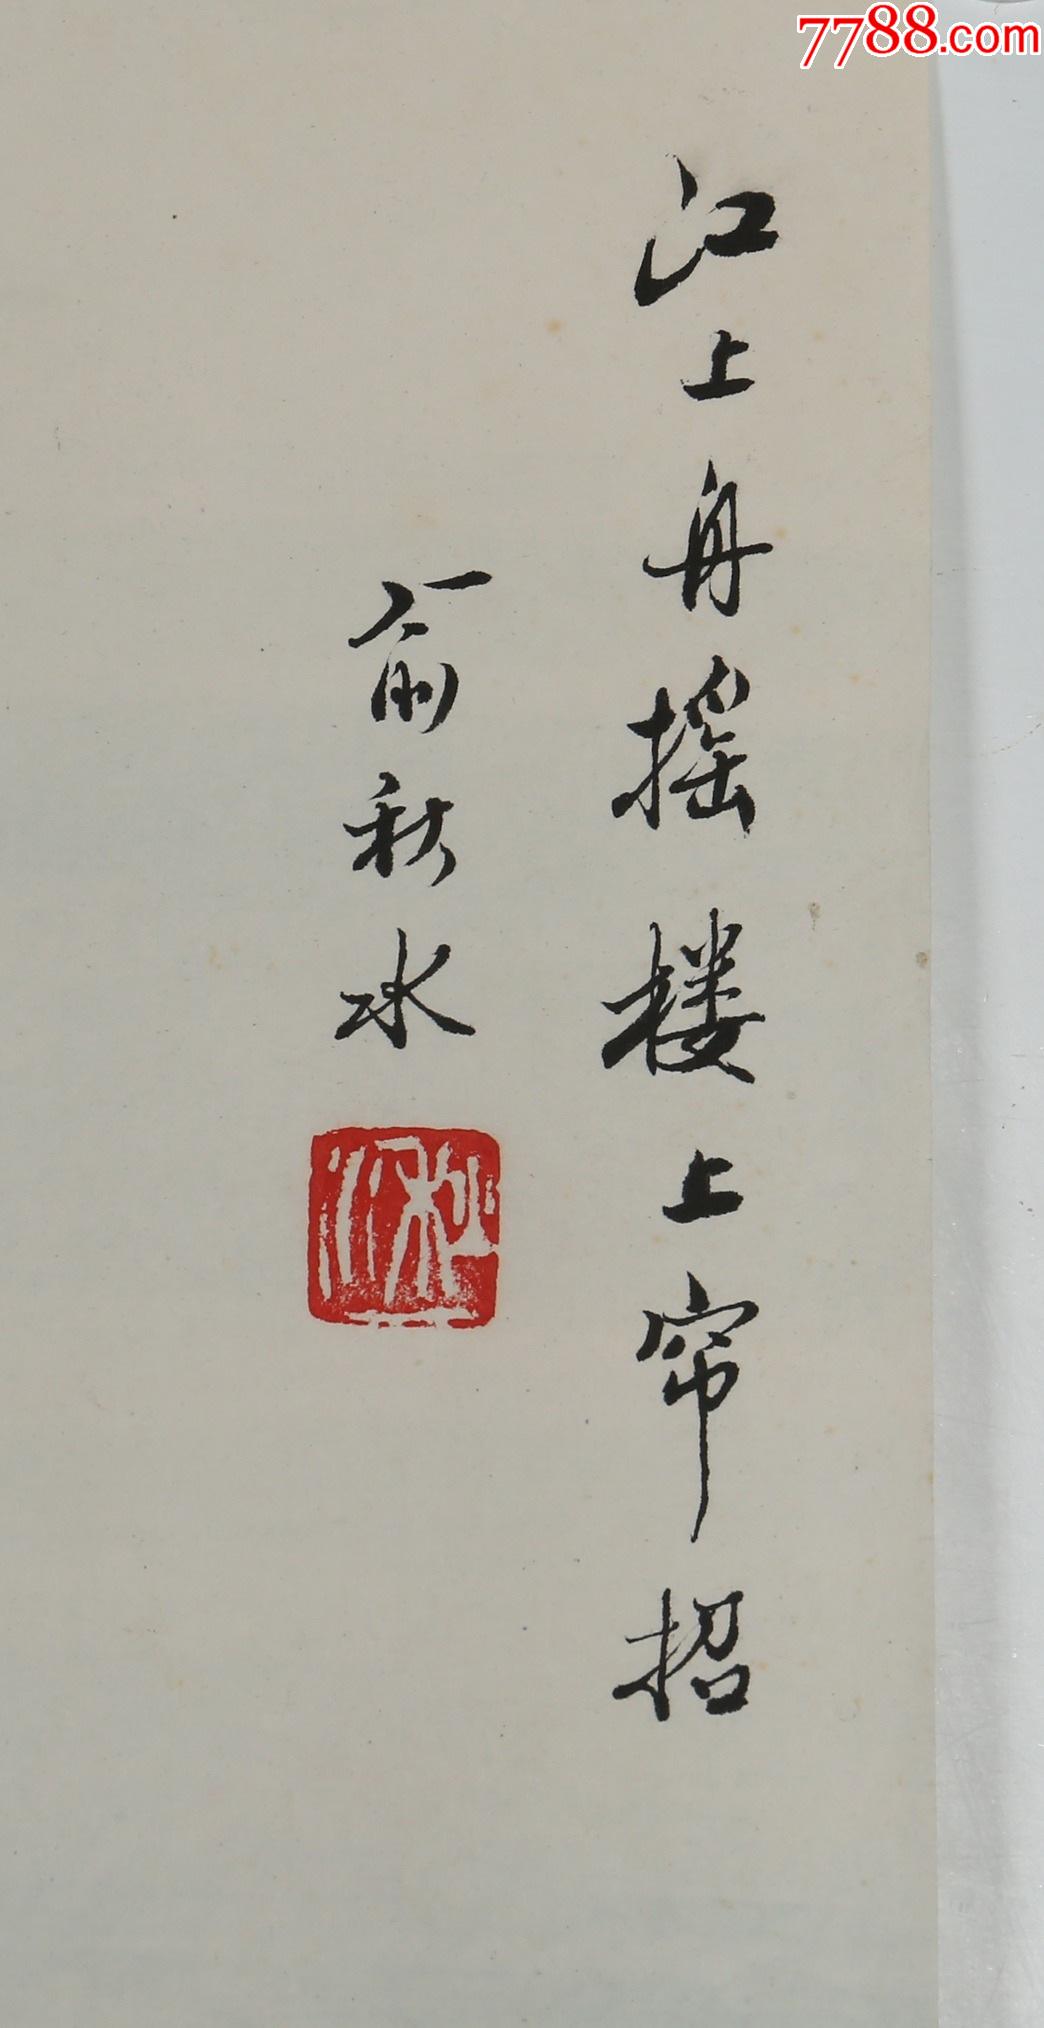 7788.com
江上舟摇楼上帘招
俞秋水